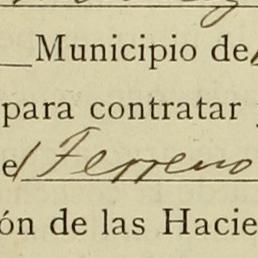 Municipio de
para contratar
el Terreno
ón de las Hacie